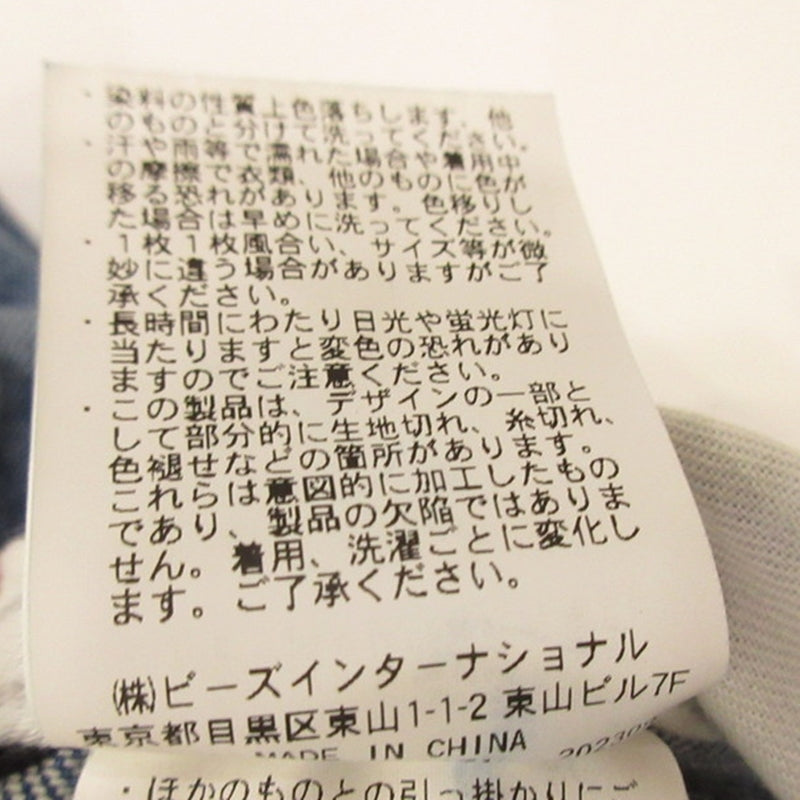 ・染料の性質上色落ちします。他
のものと分けて洗ってください。
・汗や雨等で濡れた場合や着用中
の摩擦で衣類、他のものに色が
移る恐れがあります。色移りし
た場合は早めに洗ってください。
・1枚1枚風合い、サイズ等が微
妙に違う場合がありますがご了
承ください。
・長時間にわたり日光や蛍光灯に
当たりますと変色の恐れがあり
ますのでご注意ください。
・この製品は、デザインの一部と
して部分的に生地切れ、糸切れ、
色褪せなどの箇所があります。
これらは意図的に加工したもの
であり、製品の欠陥ではありま
せん。着用、洗濯ごとに変化し
ます。ご了承ください。
㈱ビーズインターナショナル
東京都目黒区東山1-1-2 東山ビル7F
MADE IN CHINA 202302
・ほかのものとの引っ掛かりにご